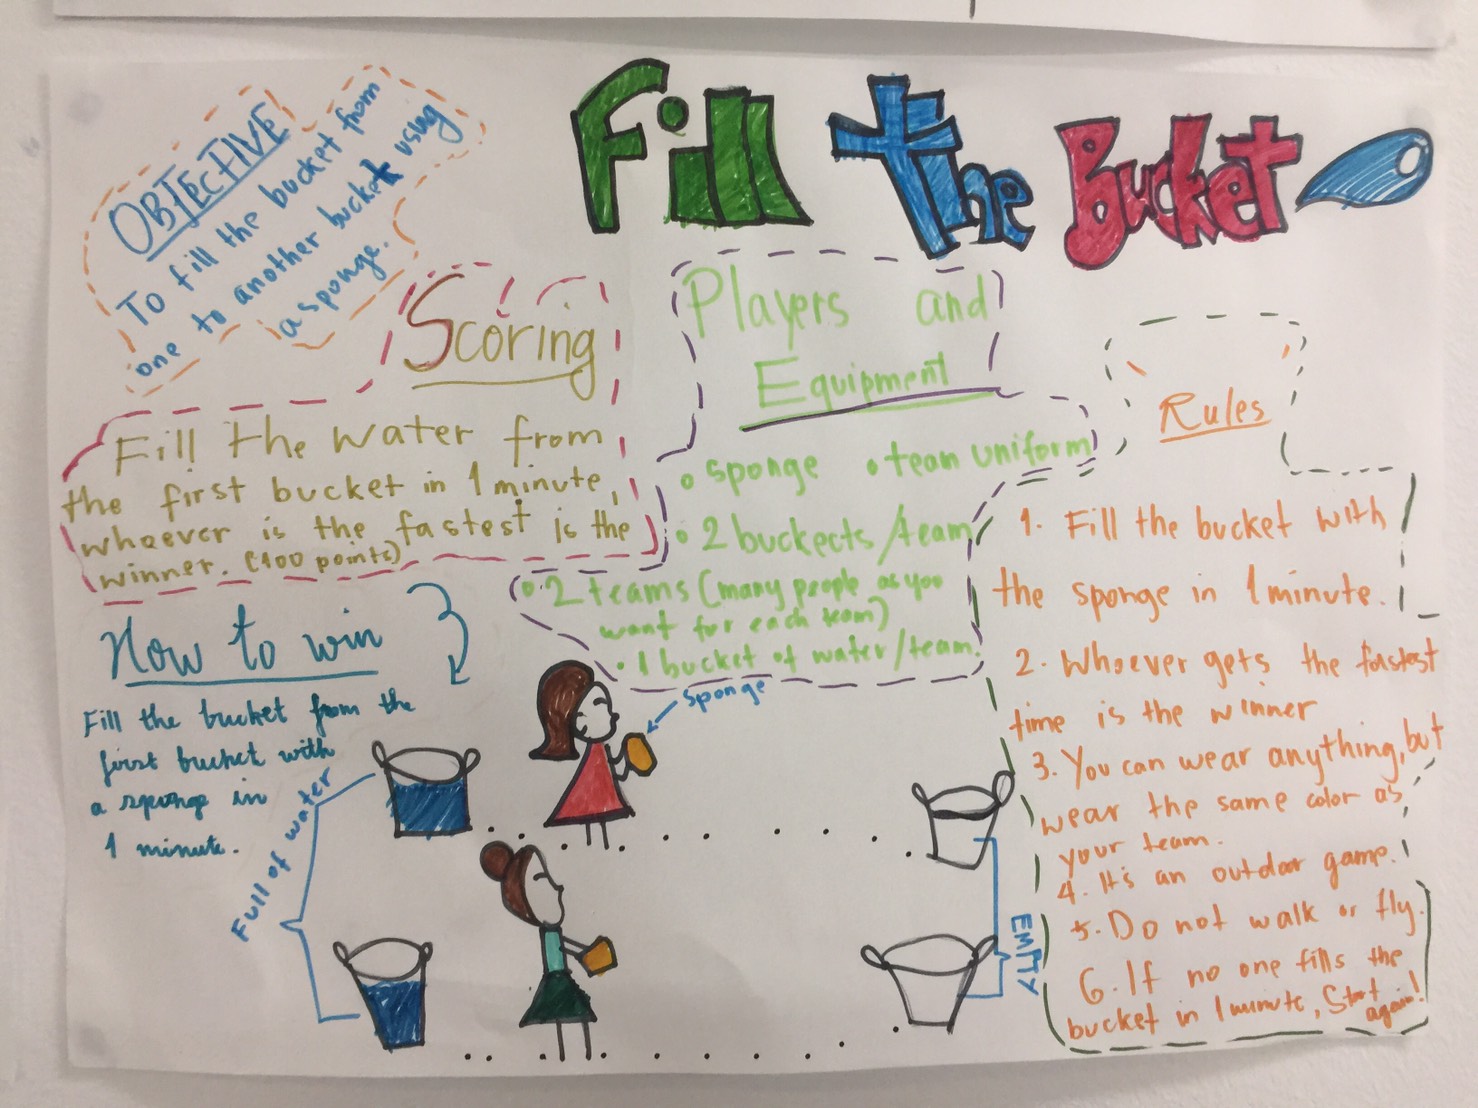 Fill the Bucket
OBJECTIVE
To fill the bucket from
one to another bucket using
a sponge.
Scoring
Fill the water from
the first bucket in 1 minute,
whoever is the fastest is the
winner. (100 points)
Players and
Equipment
• sponge • team uniform
• 2 buckects/team
• 2 teams (many people as you
want for each team)
• 1 bucket of water/team.
Rules
1. Fill the bucket with
the sponge in 1 minute.
2. Whoever gets the fastest
time is the winner
3. You can wear anything, but
wear the same color as
your team.
4. It's an outdoor game.
5. Do not walk or fly.
6. If no one fills the
bucket in 1 minute, Start
again!
How to win
Fill the bucket from the
first bucket with
a sponge in
1 minute.
sponge
Full of water
EMPTY